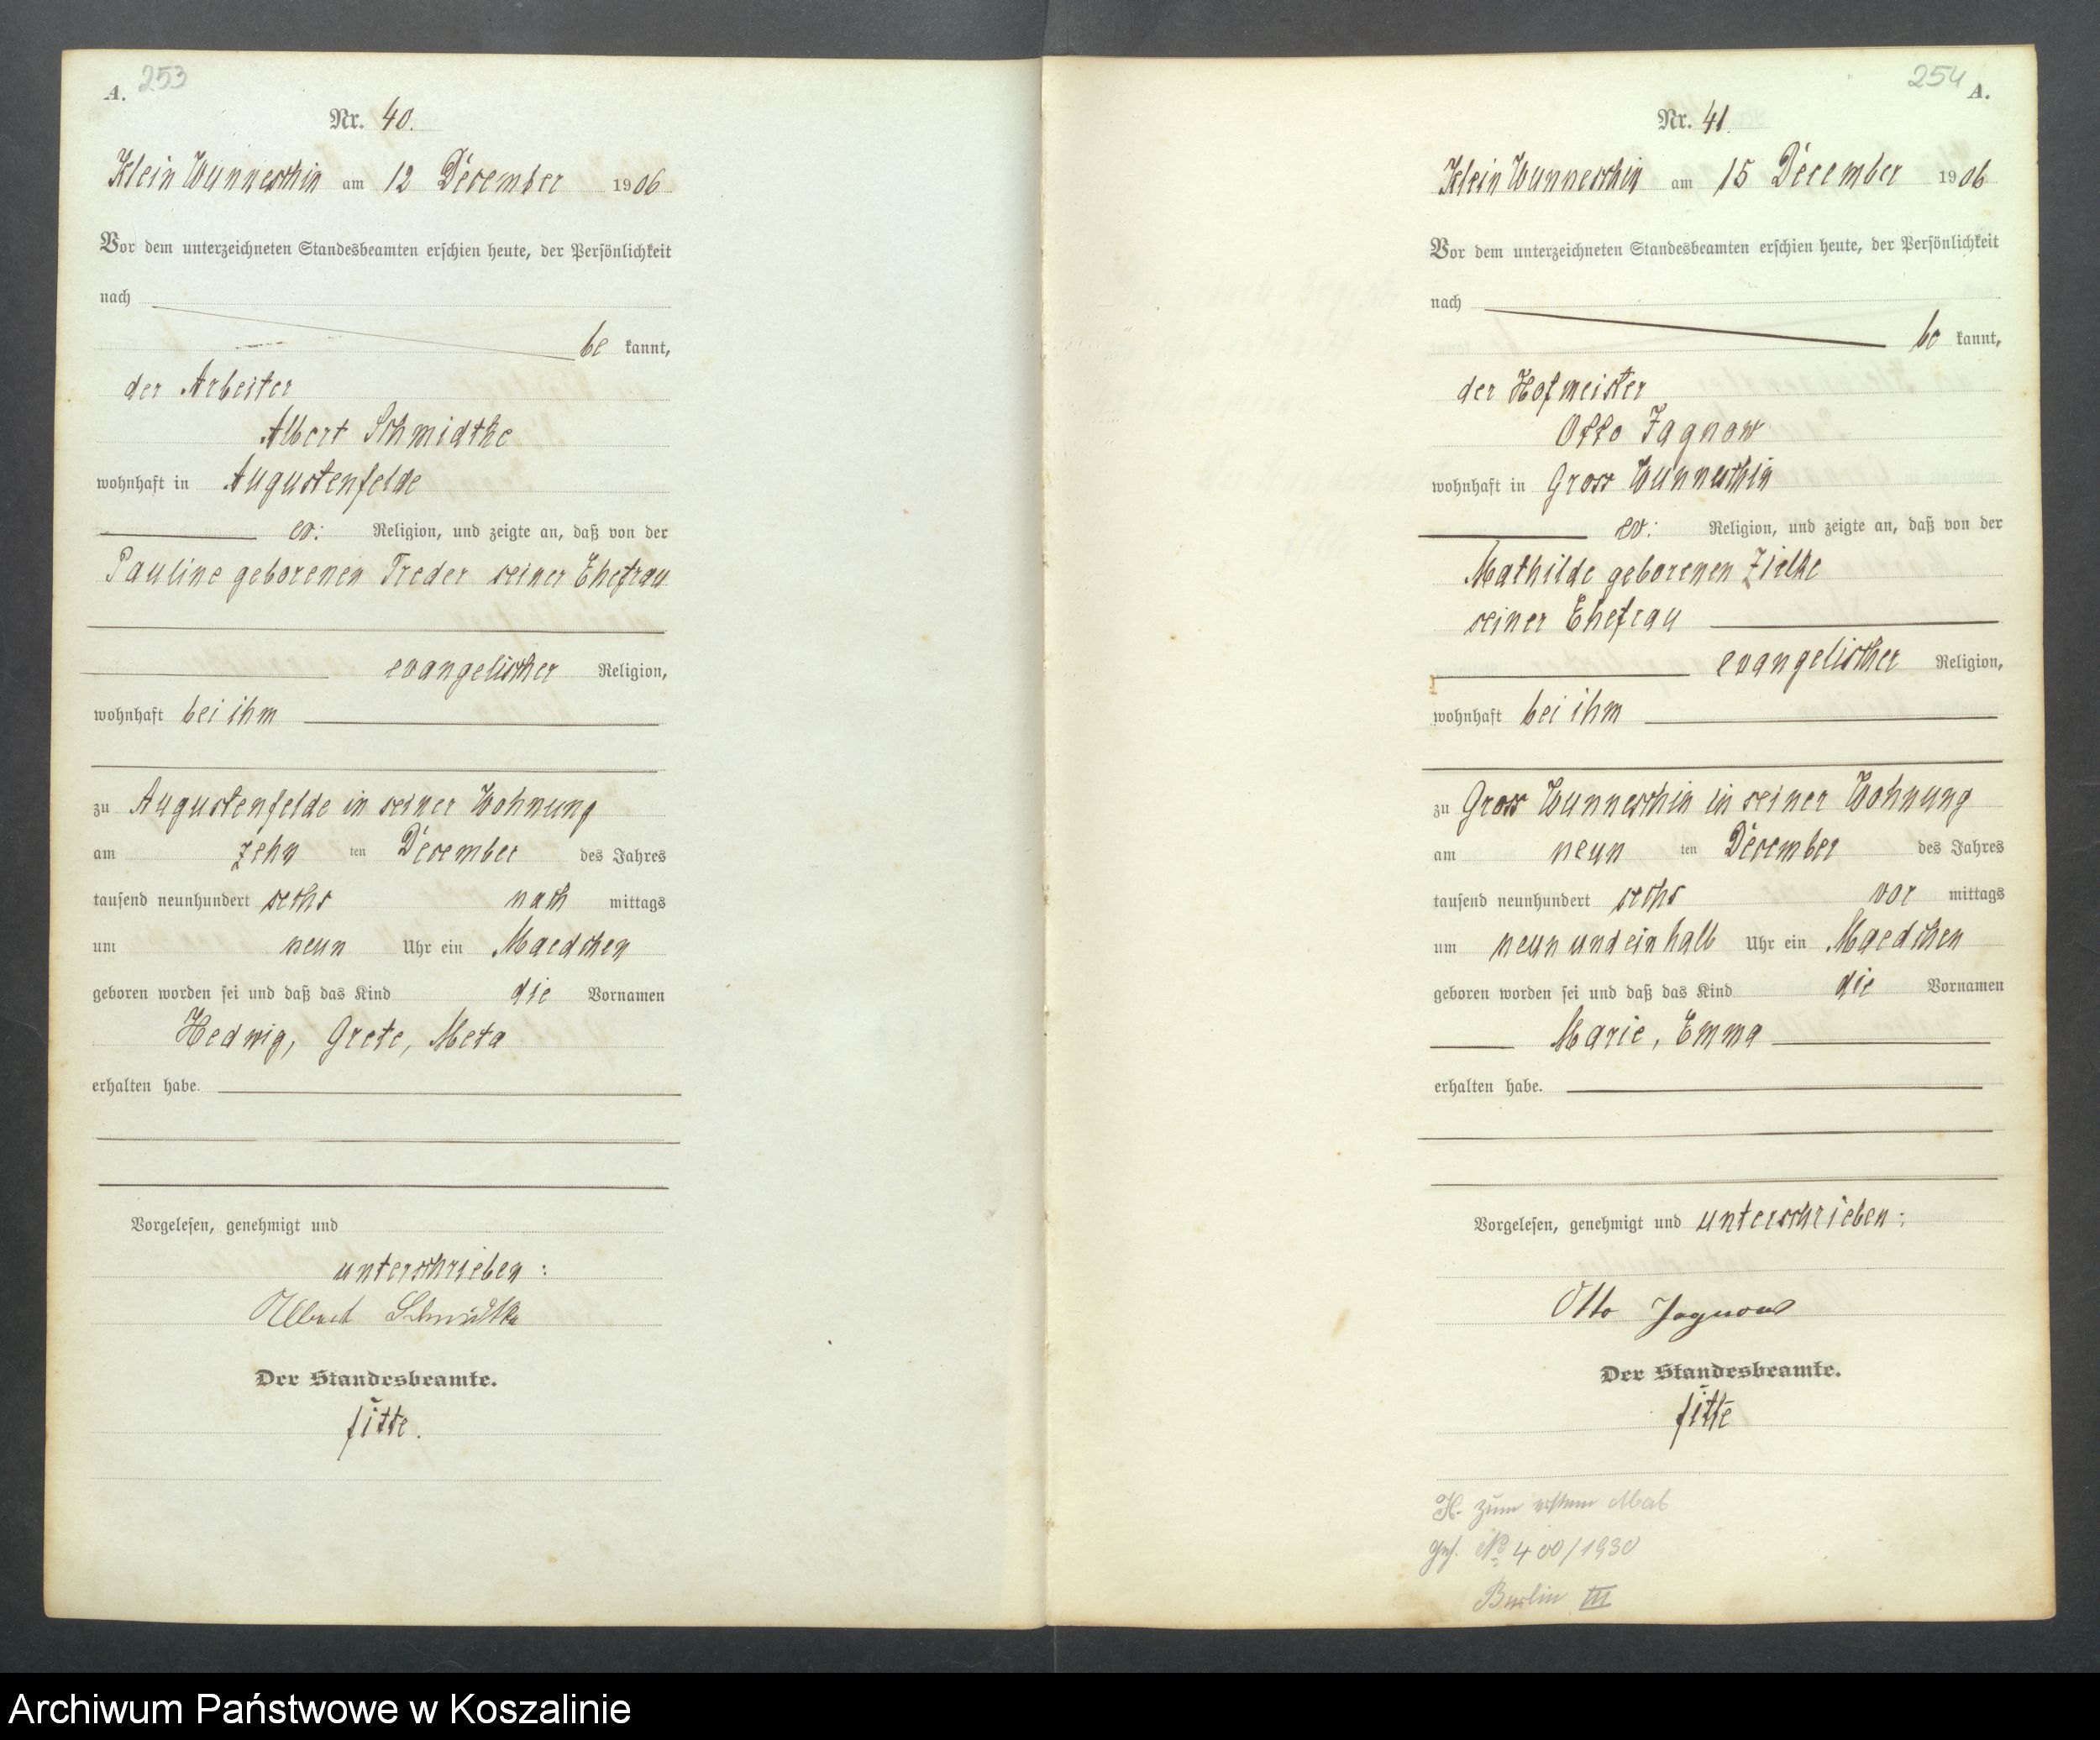 A. 253
Nr. 40.
Klein Wunneschin am 12 December 1906
Vor dem unterzeichneten Standesbeamten erschien heute, der Persönlichkeit
nach
be kannt,
der Arbeiter
Albert Schmidtke
wohnhaft in Augustenfelde
ev: Religion, und zeigte an, daß von der
Pauline geborenen Treder seiner Ehefrau
evangelischer Religion,
wohnhaft bei ihm
zu Augustenfelde in seiner Wohnung
am zehn ten December des Jahres
tausend neunhundert sechs nach mittags
um neun Uhr ein Maedchen
geboren worden sei und daß das Kind die Vornamen
Hedwig, Grete, Meta
erhalten habe.
Vorgelesen, genehmigt und
unterschrieben:
Albert Schmidtke
Der Standesbeamte.
fitte.
254 A.
Nr. 41.
Klein Wunneschin am 15 December 1906
Vor dem unterzeichneten Standesbeamten erschien heute, der Persönlichkeit
nach
be kannt,
der Hofmeister
Otto Jagnow
wohnhaft in Gross Wunneschin
ev: Religion, und zeigte an, daß von der
Mathilde geborenen Zielke
seiner Ehefrau
evangelischer Religion,
wohnhaft bei ihm
zu Gross Wunneschin in seiner Wohnung
am neun ten December des Jahres
tausend neunhundert sechs vor mittags
um neun und ein halb Uhr ein Maedchen
geboren worden sei und daß das Kind die Vornamen
Marie, Emma
erhalten habe.
Vorgelesen, genehmigt und unterschrieben:
Otto Jagnow
Der Standesbeamte.
fitte
H. zum ersten Mal
No 400/1930
Berlin III
Archiwum Państwowe w Koszalinie